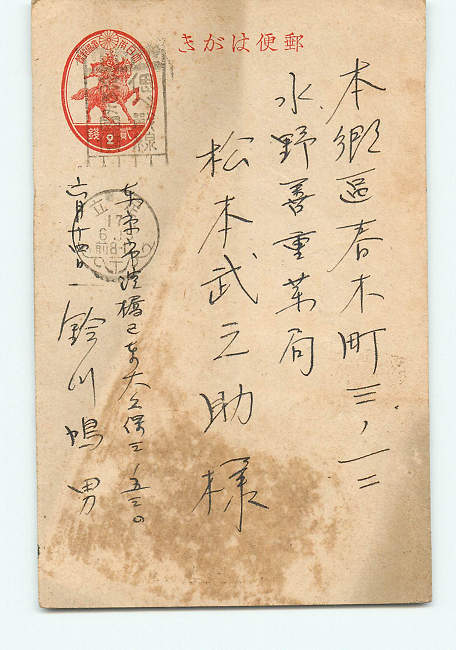 郵便はがき
大日本帝国郵便
貳2錢
本郷區春木町三ノ一三
水野善重薬局
松本武之助様
東京市淀橋區東大久保二ノ五三〇
鈴川鳩男
六月十四日
立
17
6
前8-